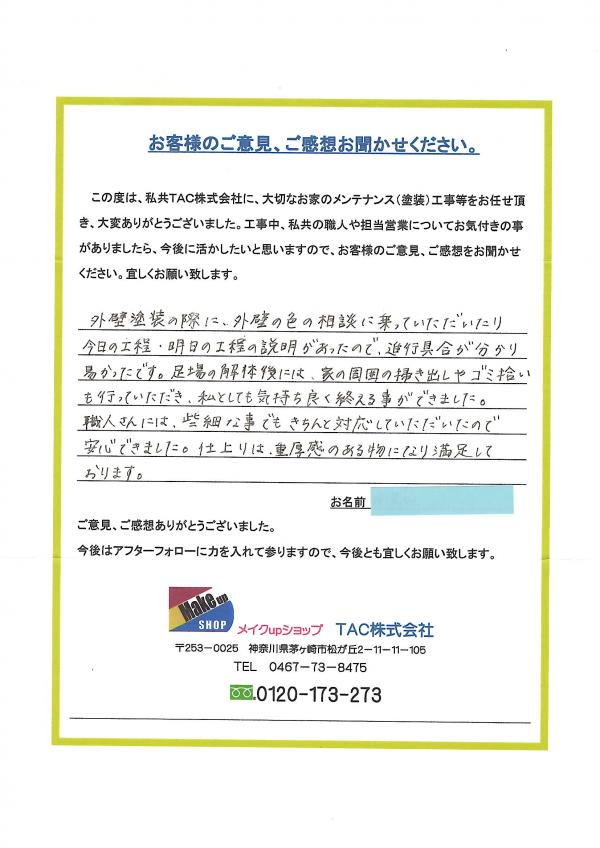 お客様のご意見、ご感想お聞かせください。
この度は、私共TAC株式会社に、大切なお家のメンテナンス(塗装)工事等をお任せ頂
き、大変ありがとうございました。工事中、私共の職人や担当営業についてお気付きの事
がありましたら、今後に活かしたいと思いますので、お客様のご意見、ご感想をお聞かせ
ください。宜しくお願い致します。
外壁塗装の際に、外壁の色の相談に乗っていただいたり
今日の工程・明日の工程の説明があったので、進行具合が分かり
易かったです。足場の解体後には、家の周囲の掃き出しやゴミ拾い
も行っていただき、私としても気持ち良く終える事ができました。
職人さんには、些細な事でもきちんと対応していただいたので
安心できました。仕上りは、重厚感のある物になり満足して
おります。
お名前
ご意見、ご感想ありがとうございました。
今後はアフターフォローに力を入れて参りますので、今後とも宜しくお願い致します。
Make up
SHOP
メイクupショップ TAC株式会社
〒253-0025 神奈川県茅ヶ崎市松が丘2-11-11-105
TEL 0467-73-8475
0120-173-273